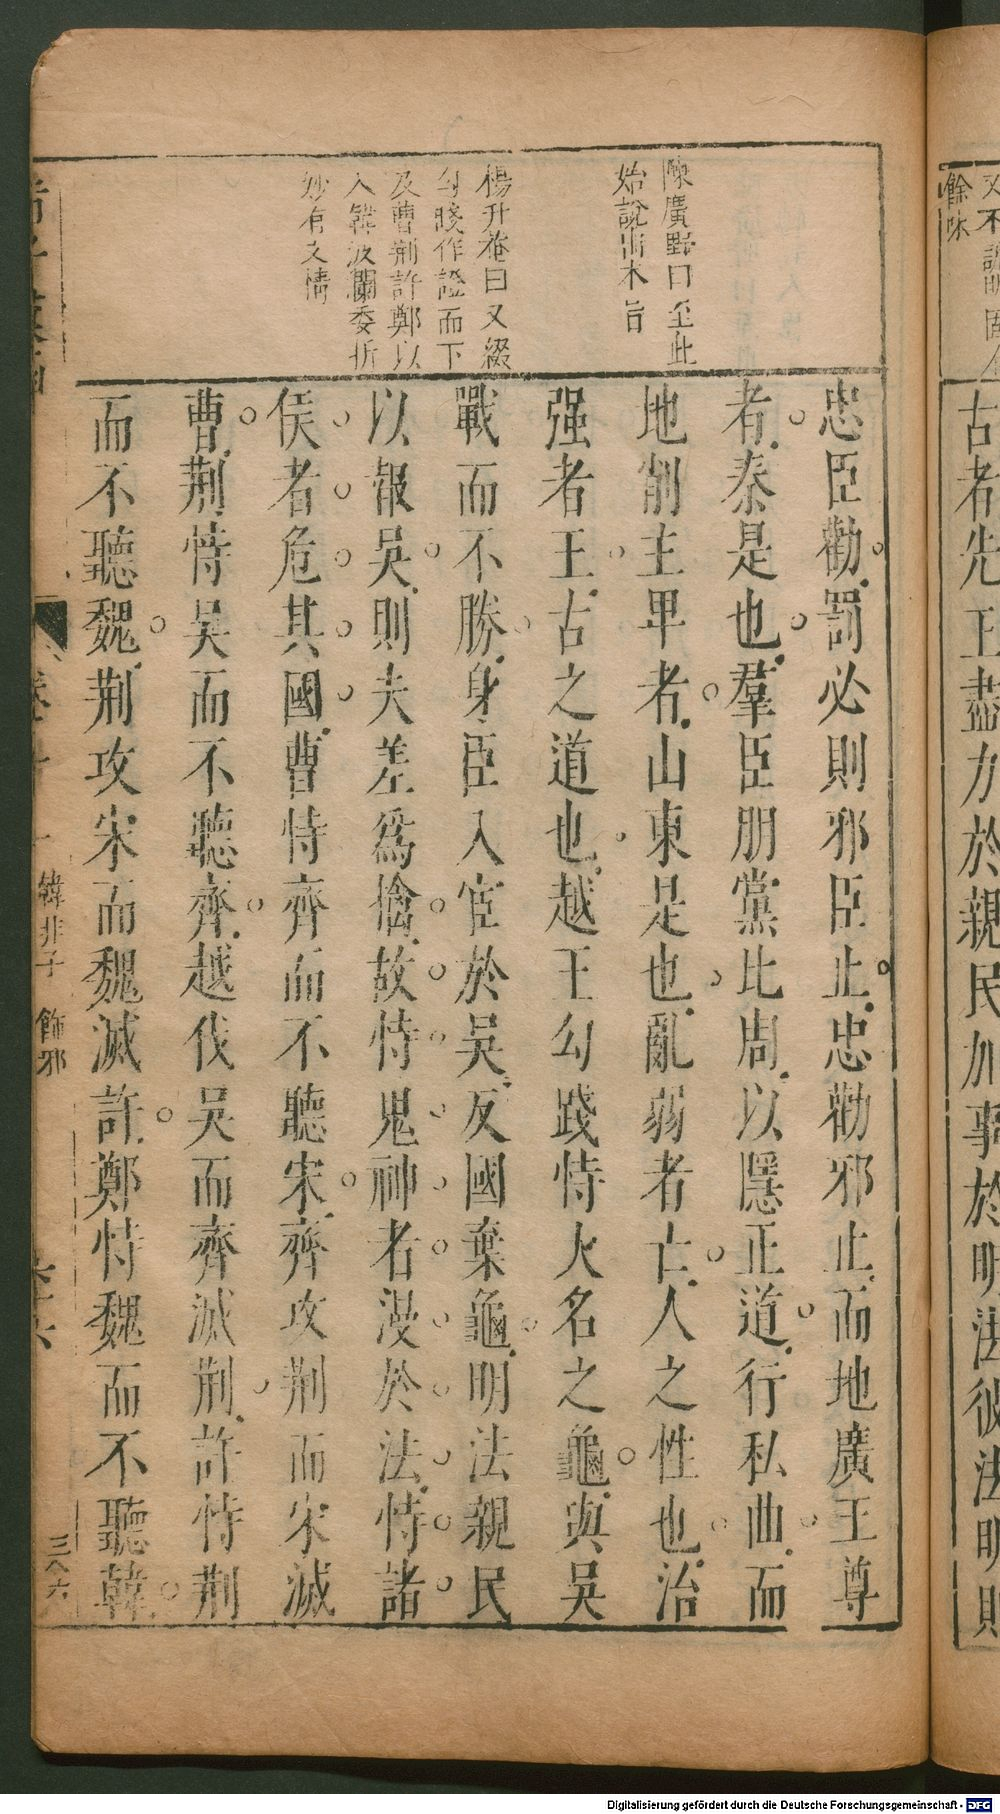 又不說明固人
餘味
古者先王盡力於親民加事於明法彼法明則
陳廣野曰至此
始說出本旨
楊升菴曰又綴
勾踐作證而下
及曹荆許鄭以
入韓波瀾委折
妙有文情
忠臣勸罰必則邪臣止忠勸邪止而地廣王尊
者秦是也羣臣朋黨比周以隱正道行私曲而
地削主畢者山東是也亂弱者亡人之性也治
强者王古之道也越王勾踐恃大名之龜與吳
戰而不勝身臣入宦於吳反國棄龜明法親民
以報吳則夫差爲擒故恃鬼神者漫於法恃諸
侯者危其國曹恃齊而不聽宋齊攻荆而宋滅
曹荆恃吳而不聽齊越伐吳而齊滅荆許恃荆
而不聽魏荆攻宋而魏滅許鄭恃魏而不聽韓
韓非子 飾邪
三八六
Digitalisierung gefördert durch die Deutsche Forschungsgemeinschaft - DFG